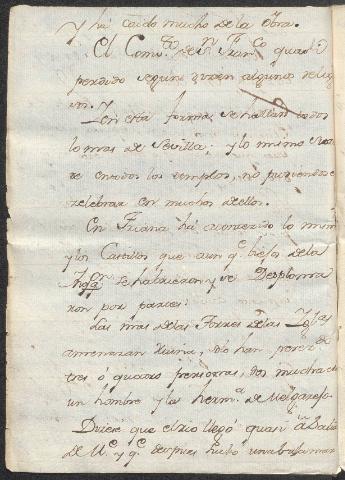 y há caído mucho de la obra.
El Comb.to de S.n Fran.co quasi
perdido segun juran algunos de ellos
Y en esta forma se hallan todos
lo mas de Sevilla; y lo mismo
en todos los templos, no pudiendo
celebrar en muchos de ellos.
En Triana há acontecido lo mism
y los Castillos que aunq.e viejos de la
Inq.on se habrieron y se Desploma
ron por partes.
Las mas de las Torres de las Igl.as
amenazan ruina, solo han perec.do
tres ó quatro personas, dos muchach
un hombre y la herm.a de Melgarejo.
Dicese que el rio llegó quasi á
de M.e y q.e despues hubo una baja mar